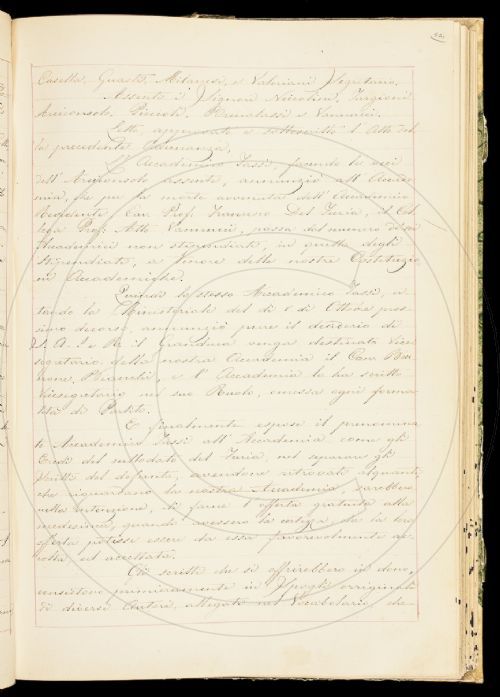 Casella, Guasti, Milanesi, e Valeriani Segretario.
Assenti i Signori Niccolini, Targioni
Arciconsolo, Piccioli, Brunetti e Vannucci.
Letto approvato e sottoscritto l'Atto del
la precedente Adunanza.
L'Accademico Tassi, facendo le veci
dell'Arciconsolo assente, annunziò all'Accade
mia, che per la morte avvenuta dell'Accademico
Residente Cav. Prof. Francesco Del Furia, il Col
lega Prof. Atto Vannucci, passa dal numero degli
Accademici non stipendiati, in quello degli
stipendiati, a tenore delle nostre Costituzio
ni Accademiche.
Quindi lo stesso Accademico Tassi, ci
tando la Ministeriale del dì 8 di Ottobre pros
simo decorso, annunziò pure il desiderio di
S. A. I. e R. il Granduca venga destinato Vice
segretario della nostra Accademia il Can. Bar
none Bianchi, e l'Accademia lo ha scritto
Vicesegretario nel suo Ruolo, omessa ogni forma
lità di Partito.
E finalmente espose il prenomina
to Accademico Tassi all'Accademia come gli
Eredi del sullodato del Furia, nel separare gli
scritti del defunto, avendone ritrovati alquanti,
che riguardano la nostra Accademia, sarebbero
nella intenzione di farne l'offerta gratuita alla
medesima, quando avessero la certezza che la loro
offerta potesse essere da essa favorevolmente ac
colta ed accettata.
Gli scritti che si offrirebbero in dono,
consistono primieramente in Spogli originali
di diversi Autori, allegati nel Vocabolario da-